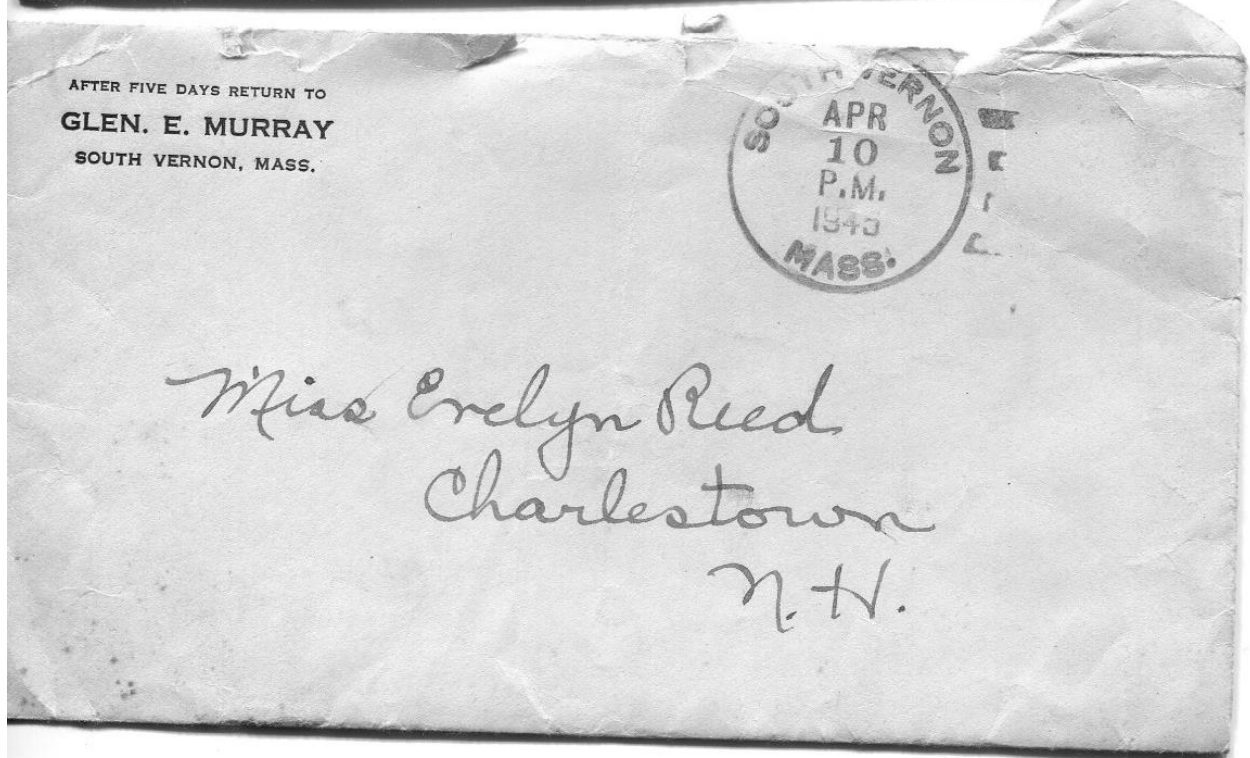 AFTER FIVE DAYS RETURN TO
GLEN. E. MURRAY
SOUTH VERNON, MASS.
SOUTH VERNON
APR
10
P.M.
MASS.
Miss Evelyn Reed
Charlestown
N.H.